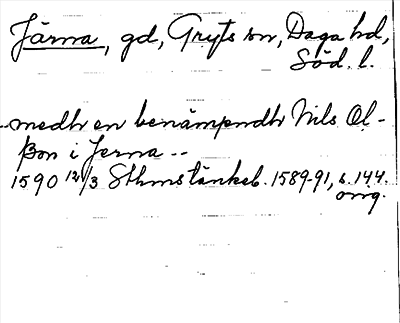 Järna, gd, Gryts sn, Daga hd,
Söd. l.
--medh en benämpndh Nils Ol-
ßon i Jerna --
1590 12/3 Sthms tänkeb. 1589-91, s. 144.
orig.